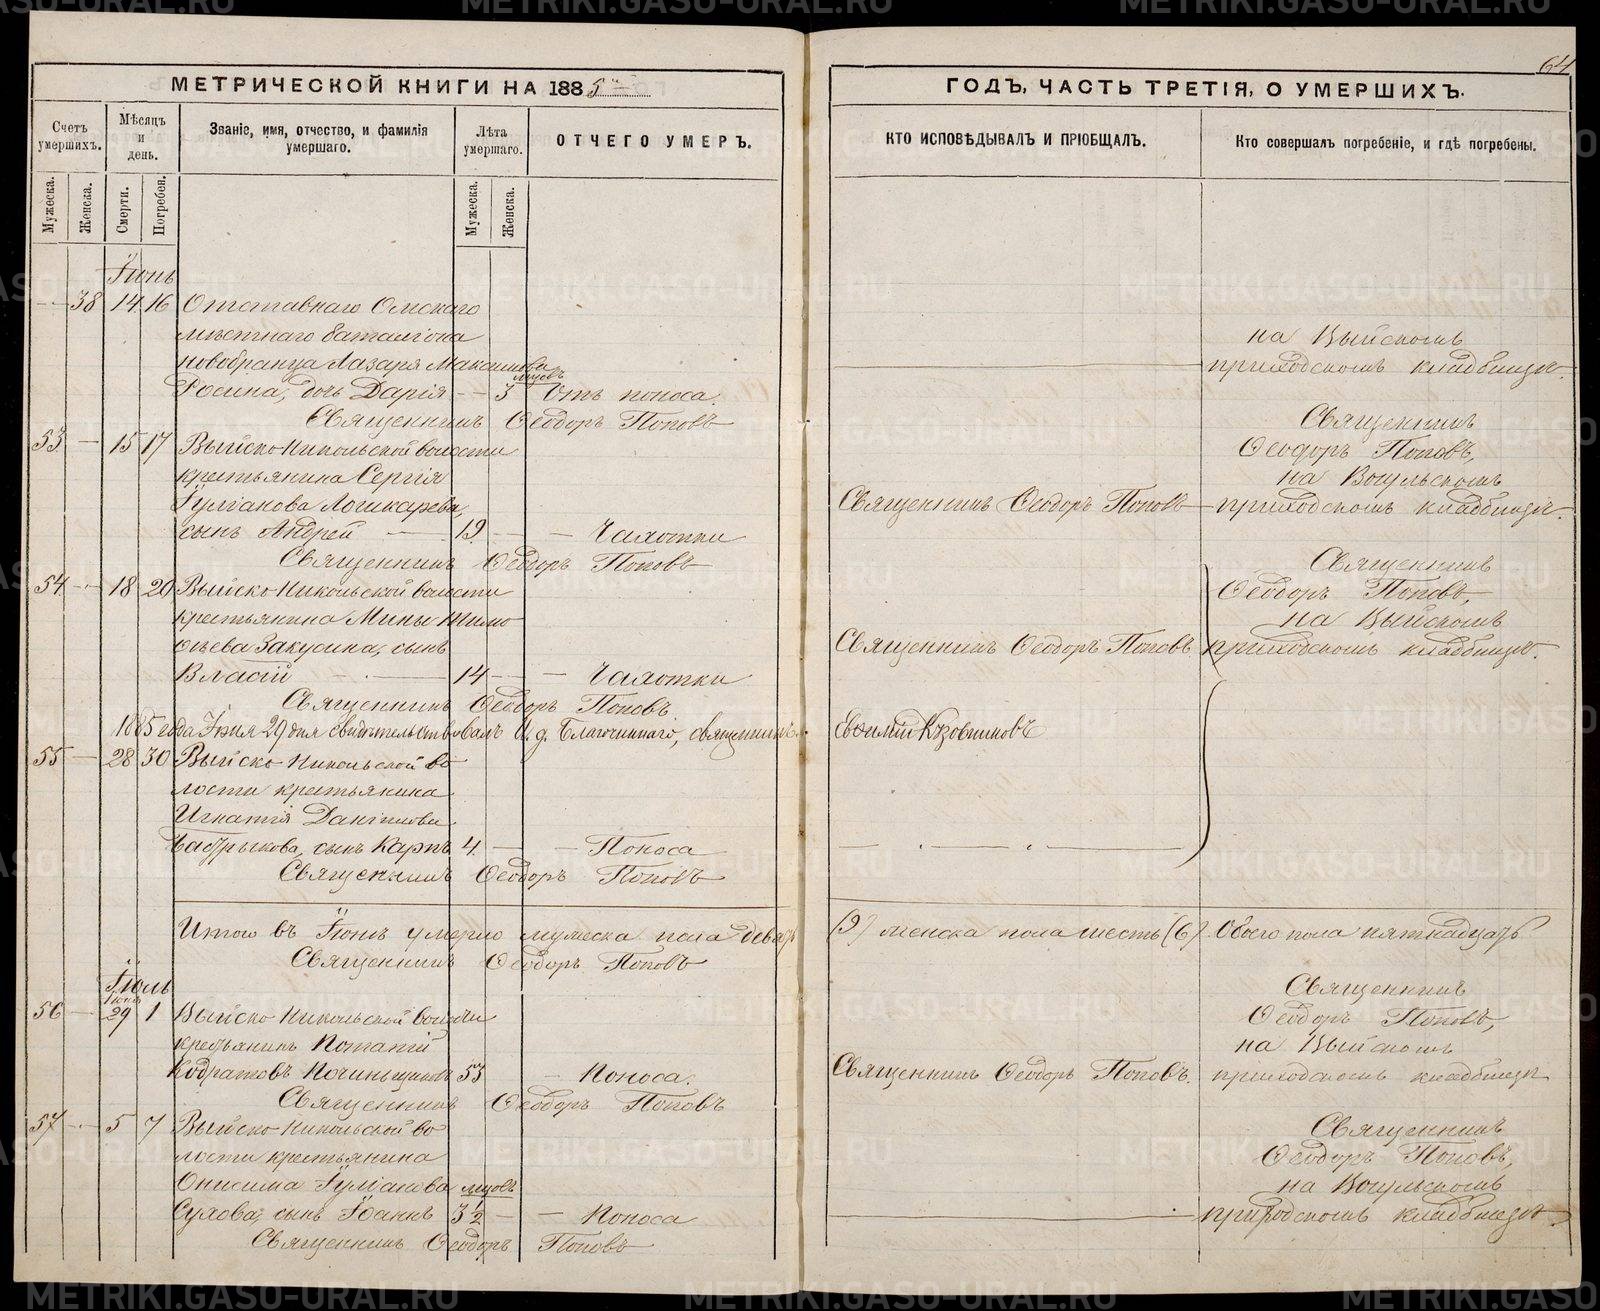 64
МЕТРИЧЕСКОЙ КНИГИ НА 1885й
ГОДЪ, ЧАСТЬ ТРЕТІЯ, О УМЕРШИХЪ.
Счетъ умершихъ.
Мѣсяцъ и день.
Званіе, имя, отчество, и фамилія умершаго.
Лѣта умершаго.
ОТЧЕГО УМЕРЪ.
КТО ИСПОВѢДЫВАЛЪ И ПРІОБЩАЛЪ.
Кто совершалъ погребеніе, и гдѣ погребены.
Мужеска.
Женска.
Смерти.
Погребен.
Мужеска.
Женска.
Іюнь
38 14 16 Отставнаго Омскаго
мѣстнаго баталіона
новобранца Лазаря Максимова
Росина, дочь Дарія 3 мцовъ Отъ поноса.
на Выйскомъ
приходскомъ кладбищѣ.
Священникъ Ѳеодоръ Поповъ
53 15 17 Выйско-Никольской волости
крестьянина Сергія
Іуліанова Лошкарева,
сынъ Андрей 19 Чахотки
Священникъ Ѳеодоръ Поповъ
Священникъ
Ѳеодоръ Поповъ,
на Вогульскомъ
приходскомъ кладбищѣ.
Священникъ Ѳеодоръ Поповъ
54 18 20 Выйско-Никольской волости
крестьянина Мины Тимо
ѳеева Закусина, сынъ
Власій 14 Чахотки
Священникъ Ѳеодоръ Поповъ
Священникъ
Ѳеодоръ Поповъ,
на Выйскомъ
приходскомъ кладбищѣ.
Священникъ Ѳеодоръ Поповъ.
1885 года Іюня 29 дня свидѣтельствовалъ И. д. Благочиннаго, священникъ Евѳимій Кузовниковъ
55 28 30 Выйско-Никольской во
лости крестьянина
Игнатія Даніилова
сынъ Карпъ 4 Поноса
Священникъ Ѳеодоръ Поповъ
Итого въ Іюнѣ умерло мужеска пола девять (9) женска пола шесть (6) Обоего пола пятнадцать
Священникъ Ѳеодоръ Поповъ
Іюль
56 Іюнь 29 1 Выйско-Никольской волости
крестьянинъ Потапій
Кодратовъ 53 Поноса.
Священникъ Ѳеодоръ Поповъ.
Священникъ
Ѳеодоръ Поповъ,
на Выйскомъ
приходскомъ кладбищѣ
Священникъ Ѳеодоръ Поповъ
57 5 7 Выйско-Никольской во
лости крестьянина
Онисима Іуліанова
Сухова, сынъ Іоаннъ 3½ мцовъ Поноса
Священникъ
Ѳеодоръ Поповъ,
на Вогульскомъ
приходскомъ кладбищѣ.
Священникъ Ѳеодоръ Поповъ
METRIKI.GASO-URAL.RU